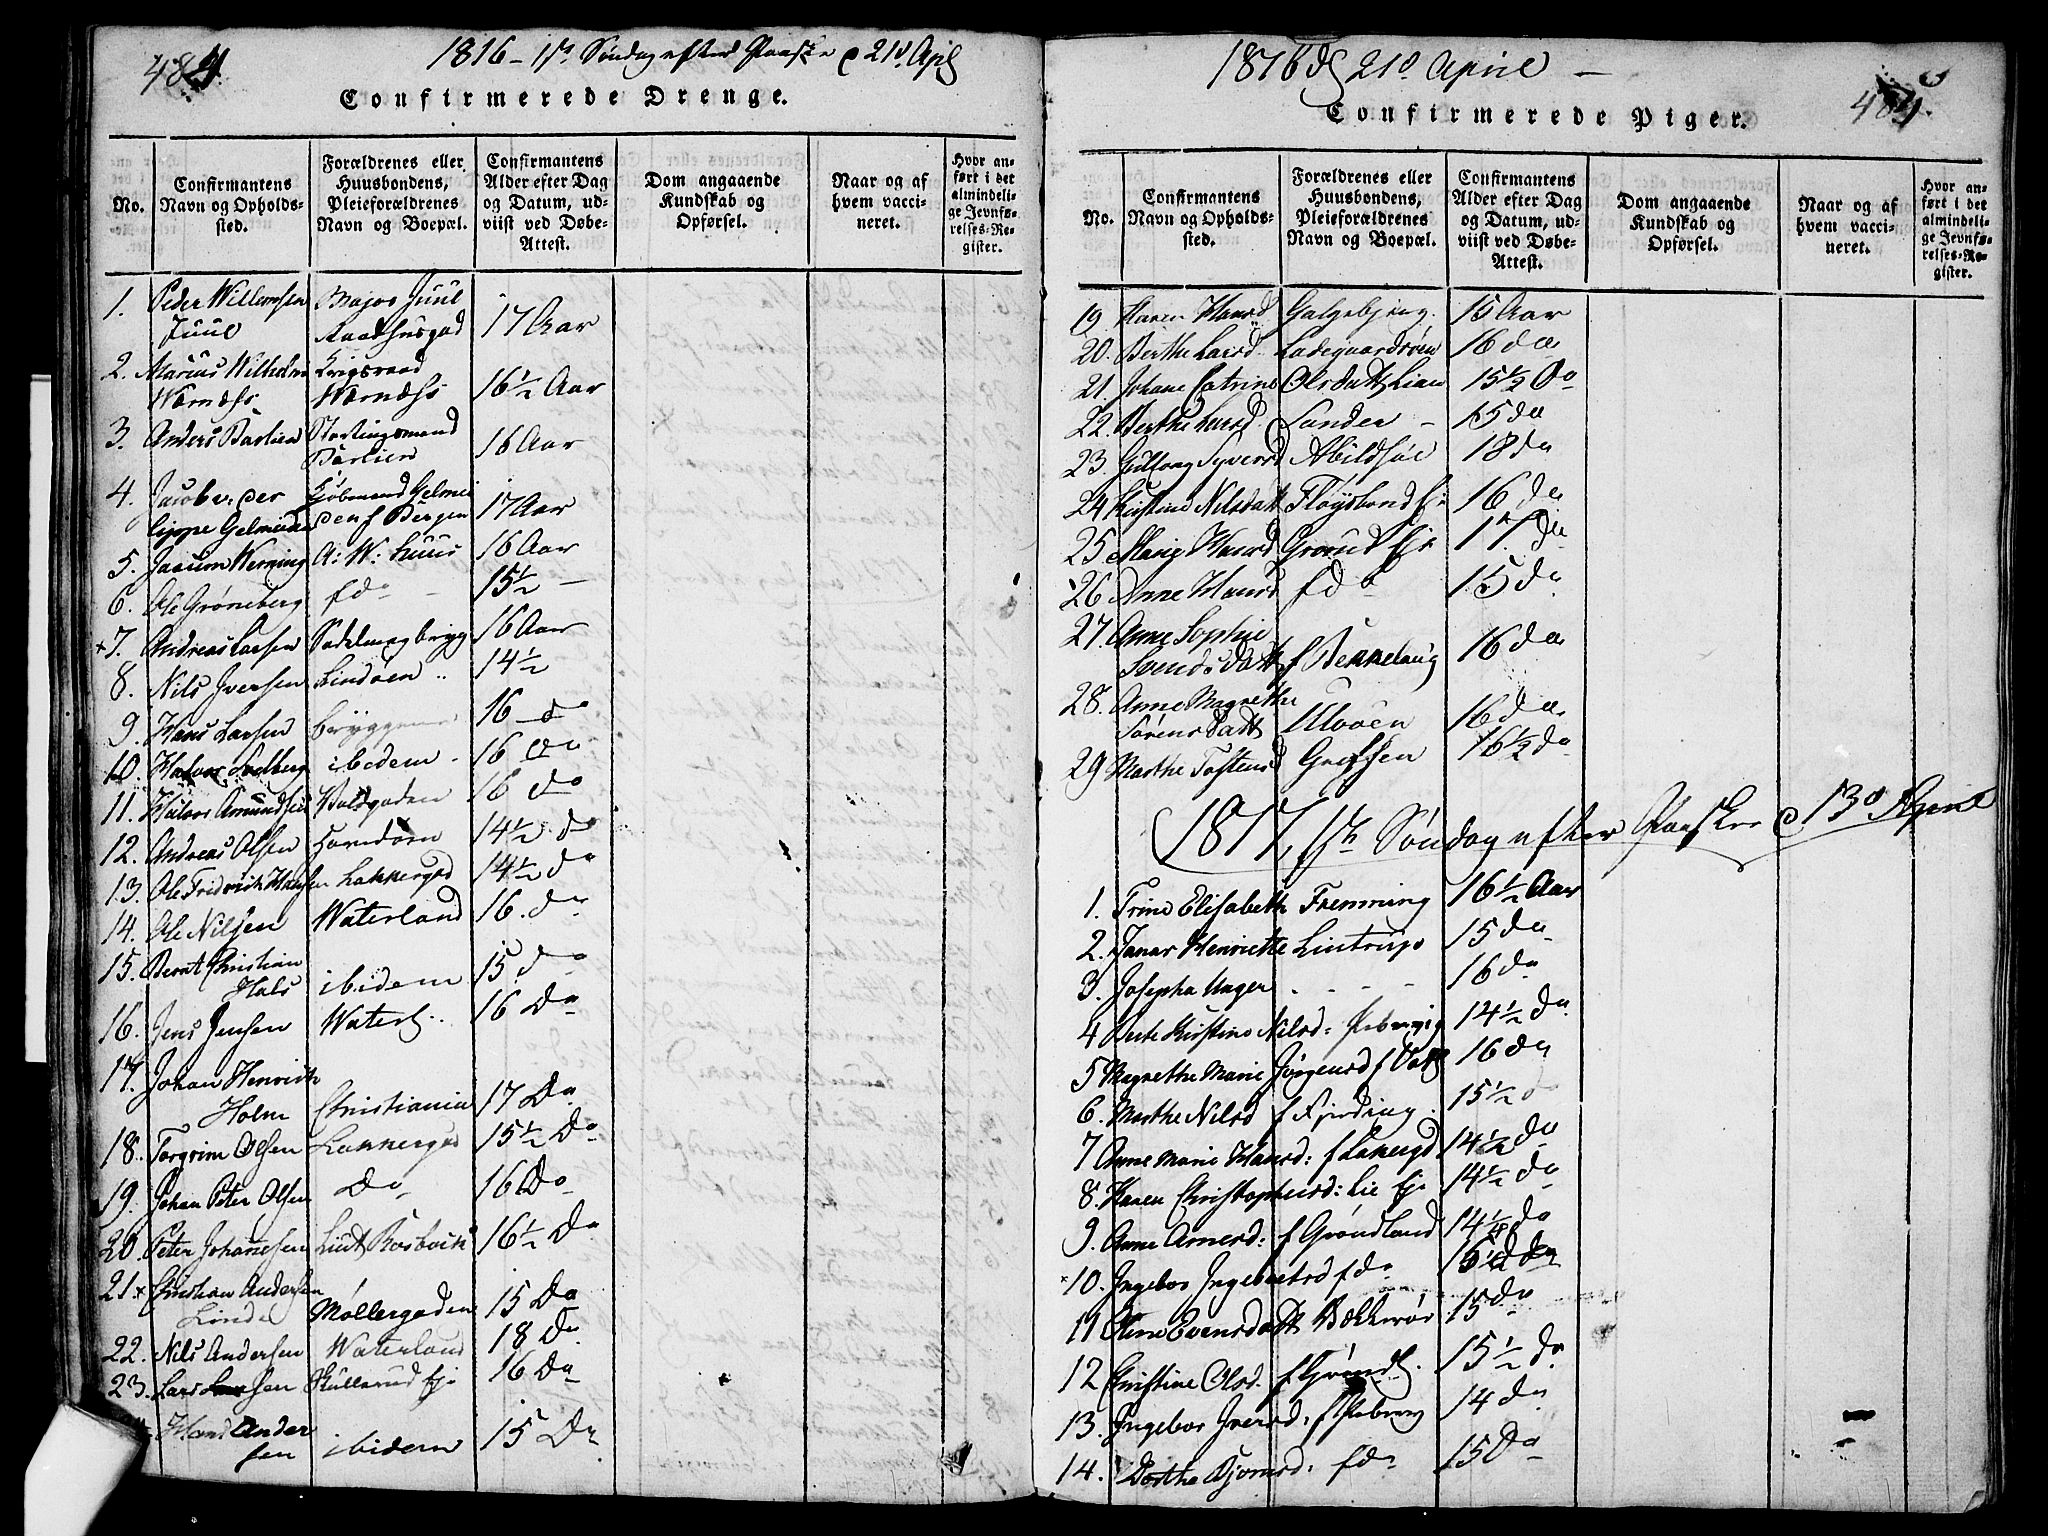 484.
1816 – 1ste Søndag efter Paaske d 21d Apl
Confirmerede Drenge.
No.
Confirmantens Navn og Opholdssted.
Forældrenes eller Huusbondens, Pleieforældrenes Navn og Boepæl.
Confirmantens Alder efter Dag og Datum, udviist ved Døbe-Attest.
Dom angaaende Kundskab og Opførsel.
Naar og af hvem vaccineret.
Hvor anført i det almindelige Jevnførelses-Register.
1. Peder Willemsen Juul Major Juul Raadhusgad 17 Aar
2. Marius Wilhelm Wærnæss Krigsraad Wærnæss 16½ Aar
3. Anders Barlien Stortingsmand Barlien 16 Aar
4. Jacob v: der Lippe Gelmeiden Kjøbmand Gelmeiden f Bergen 17 Aar
5. Jacum Werning A: W: huus 16 Aar
6. Ole Grøneberg f do 15½ –
+7. Andreas Larsen Sadelmagbrygg 16 Aar
8. Nils Iversen Lindøen .. 14½
9. Hans Larsen bryggene 16 – do
10. Halvor Solberg ibidem – 16 do
11. Halvor Amundsen Voldgaden 16 do
12. Andreas Olsen 14½ do
13. Ole Fridrich Hansen Lakkergad 14½ do
14. Ole Nilsen Waterland 16. do
15. Bernt Christian Hals ibidem 15 do
16. Jens Jensen Waterl. .. 16 Do
17. Johan Henrich Holm Christiania 17 Do
18. Torgrim Olsen Lakkergad 15½ Do
19. Johan Peter Olsen Do 16 Do
20. Peter Johanesen Liut Rosboch 16½ Do
21+ Christian Andersen Linde Møllergaden 15 Do
22. Nils Andersen Waterland 18 Do
23. Lars Larsen Skullerud Eje 16 Do
Hans Andersen ibidem 15 Do
1816 d 21d April –
Confirmerede Piger.
No.
Confirmantens Navn og Opholdssted.
Forældrenes eller Huusbondens, Pleieforældrenes Navn og Boepæl.
Confirmantens Alder efter Dag og Datum, udviist ved Døbe-Attest.
Dom angaaende Kundskab og Opførsel.
Naar og af hvem vaccineret.
Hvor anført i det almindelige Jevnførelses-Register.
19 Karen Hansd Galgebjerg 15 Aar
20. Berthe Larsd. Ladegaardsøen 16 do
21. Johane Catrine Olsdatt Lian 15½ Do
22. Berthe Larsd. Sander – 15 do
23. Gullaug Syversd Abildsøe 18 do
24 Kirstine Nilsdatt Fløysbond Ej: 16 do
25 Marig Hansd Grorud Eje 17 do
26 Anne Hansd f do 15 do
27. Anne Sophie Svendsdatt f Bekkelaug 16 do
28. Anne Magrethe Sørensdatt Ulvøen 16 do
29 Marthe Tostensd Grefsen 16½ do
1817, 1ste Søndag efter Paaske d 13d April
1. Trine Elisabeth Fremming 16½ Aar
2. Janar Henriette Lintrup 15 do
3. Josepha Unger – – – – 16 do
4 Berte Kirstine Nilsd: 14½ do
5 Magrethe Marie Jørgensd f Vat 16 do
6. Marthe Nilsd f Fjerding. 15½ d
7 Anne Marie Hansd: f Lakergd 14½ do
8. Karen Christophersd: Lie Eje 14½ do
9. Anne Arnesd: f Grøndland 14½ do
+10. Ingebor Ingebretsd f do
11 Oline Evensdatt Bækkerør 15 do
12 Christine Olsd. f Grøndl. 15½ do
13. Ingebor Iversd: 14 do
14. Dorthe Bjørnsd: f do 15 Do